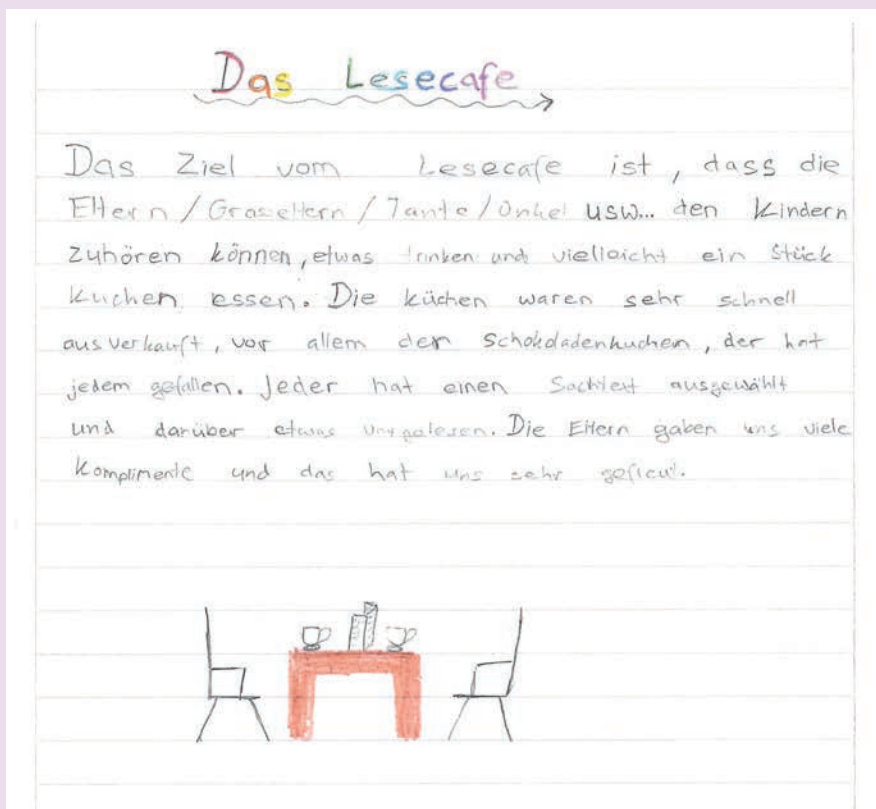 Das Lesecafe
Das Ziel vom Lesecafe ist, dass die
Eltern/Grosseltern/Tante/Onkel usw... den Kindern
zuhören können, etwas trinken und vielleicht ein Stück
Kuchen essen. Die küchen waren sehr schnell
ausverkauft, vor allem der Schokoladenkuchen, der hat
jedem gefallen. Jeder hat einen Sachtext ausgewählt
und darüber etwas vorgelesen. Die Eltern gaben uns viele
Komplimente und das hat uns sehr gefreut.